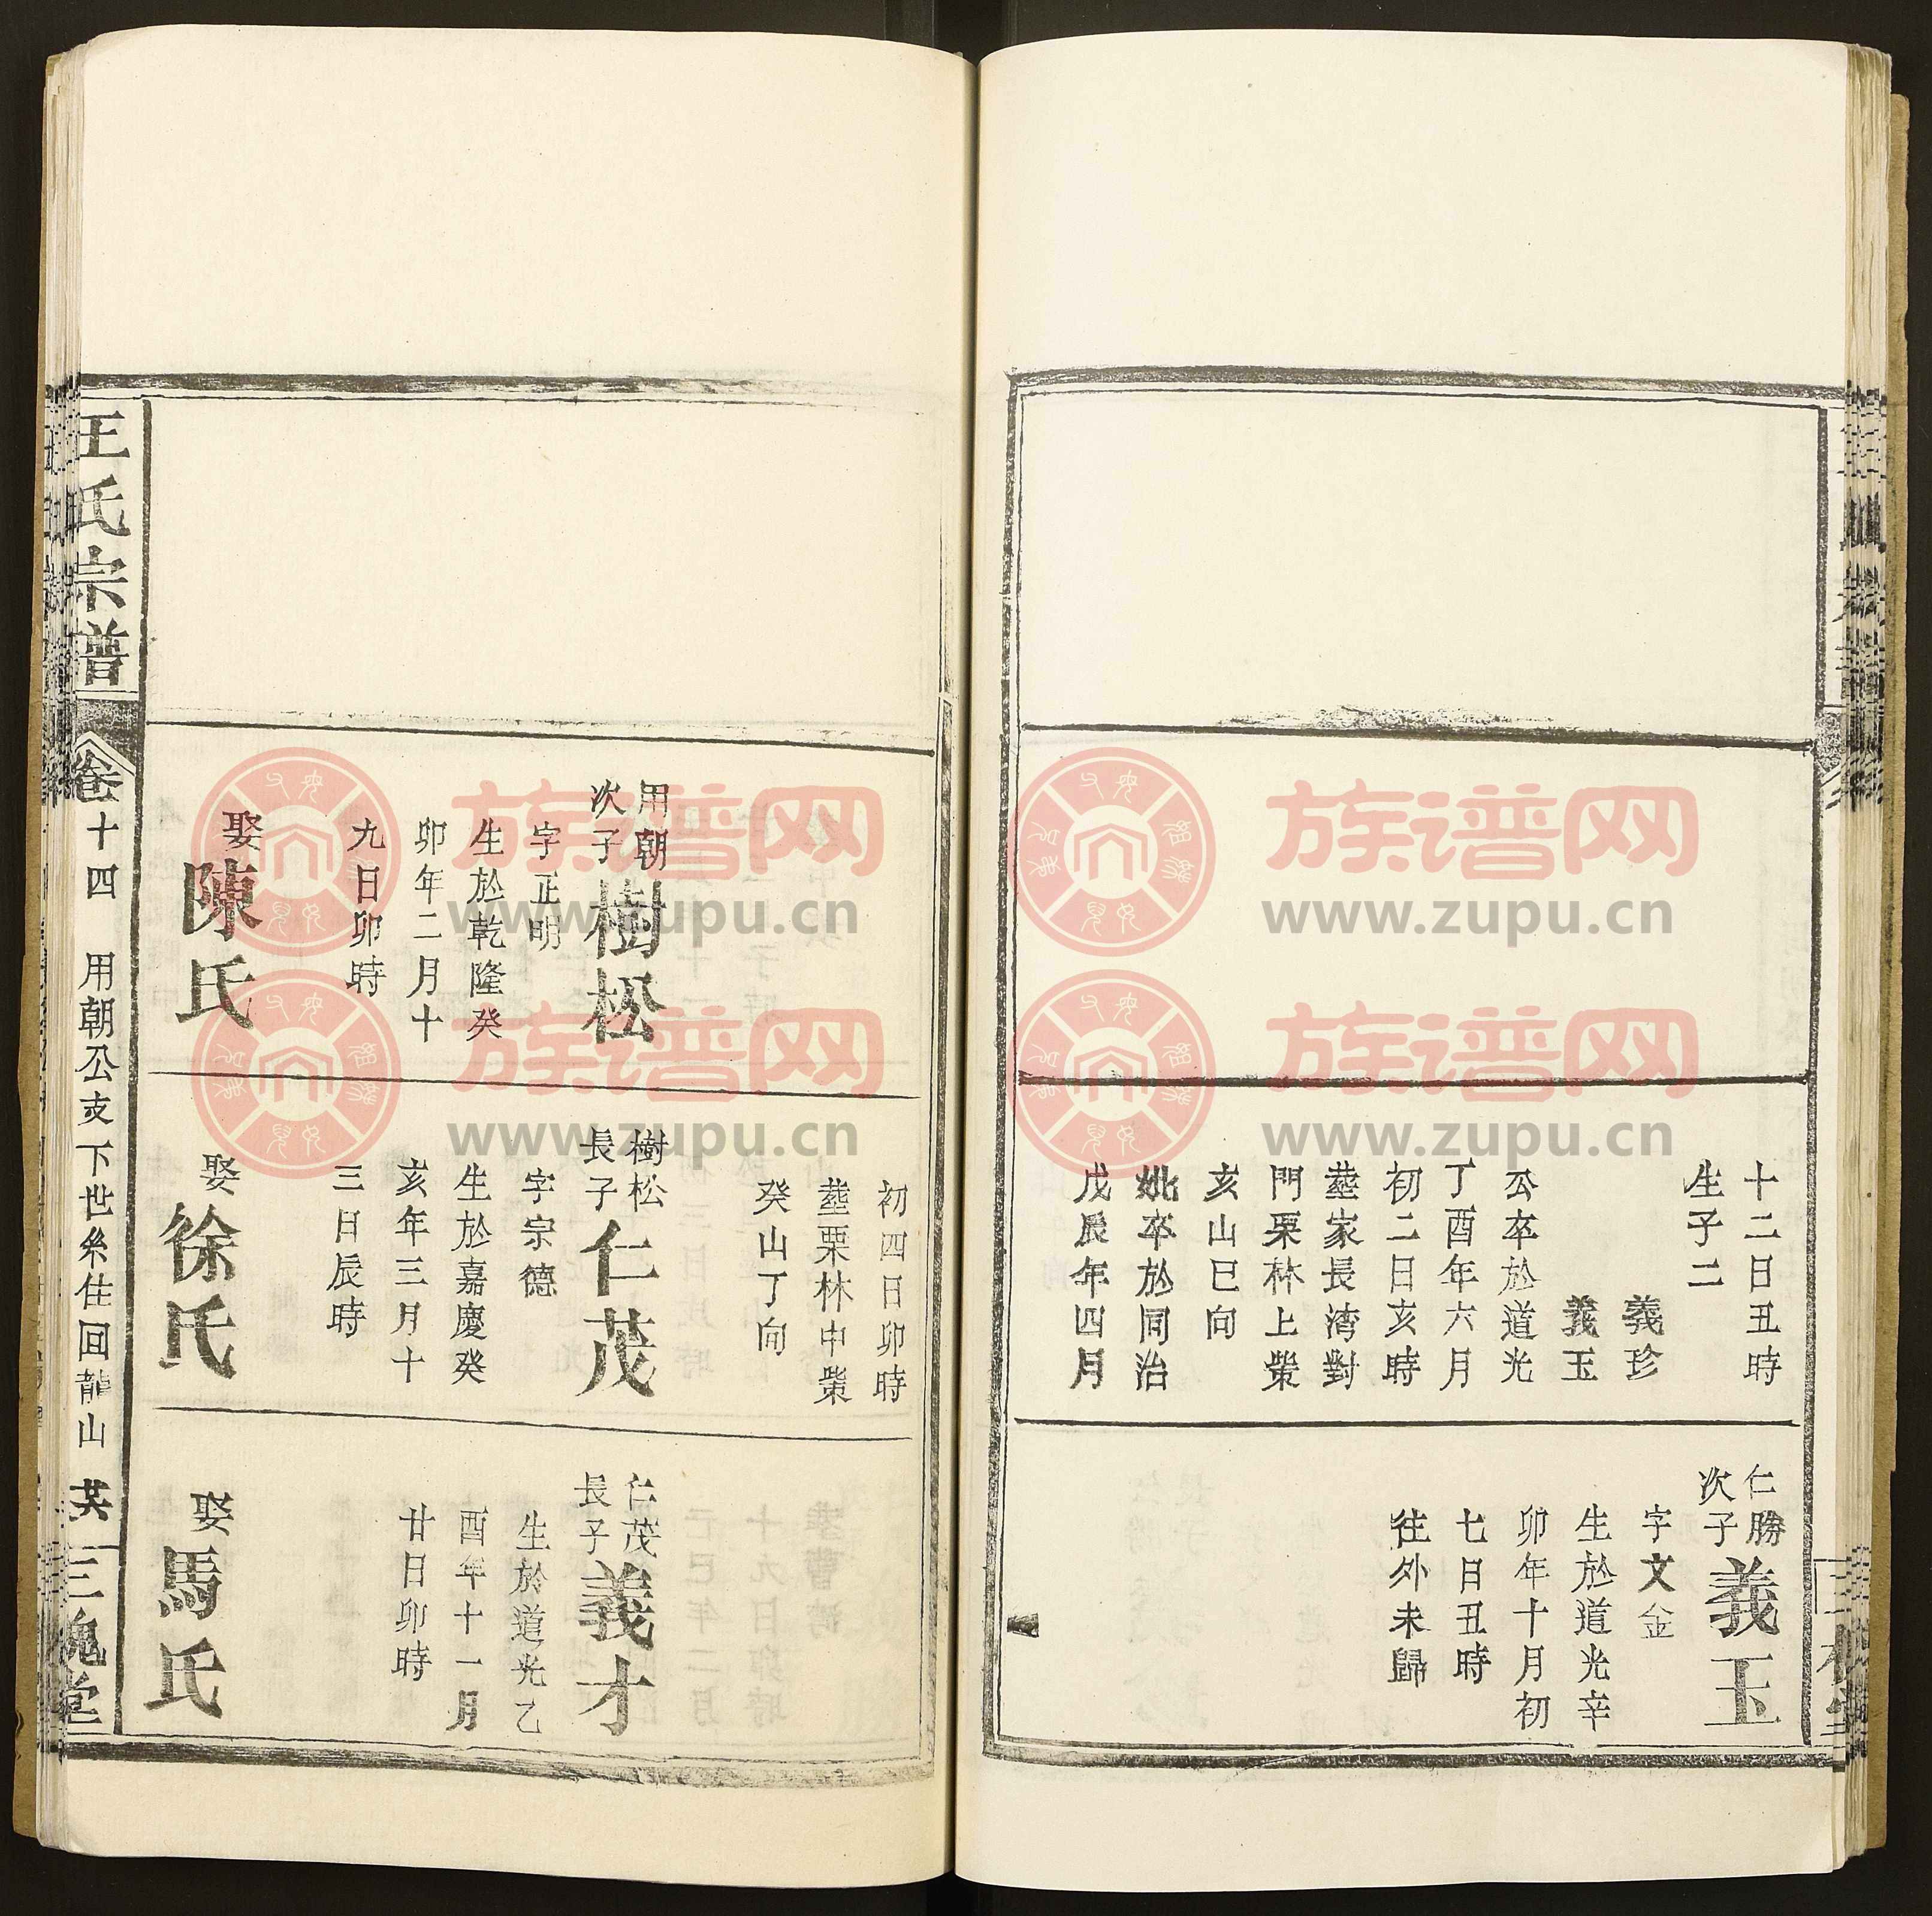 十二日丑時
生子二
義珍
義玉
公卒於道光
丁酉年六月
初二日亥時
塟家長湾對
門栗林上塋
亥山巳向
妣卒於同治
戊辰年四月
仁勝
次子
義玉
字文金
生於道光辛
卯年十月初
七日丑時
往外未歸
用朝
次子
樹松
字正明
生於乾隆癸
卯年二月十
九日卯時
娶陳氏
初四日卯時
塟栗林中塋
癸山丁向
樹松
長子
仁茂
字宗德
生於嘉慶癸
亥年三月十
三日辰時
娶徐氏
仁茂
長子
義才
生於道光乙
酉年十一月
廿日卯時
娶馬氏
王氏宗譜
卷十四 用朝公支下世系住回龍山
三槐堂
族谱网
www.zupu.cn
族谱网
www.zupu.cn
族谱网
www.zupu.cn
族谱网
www.zupu.cn